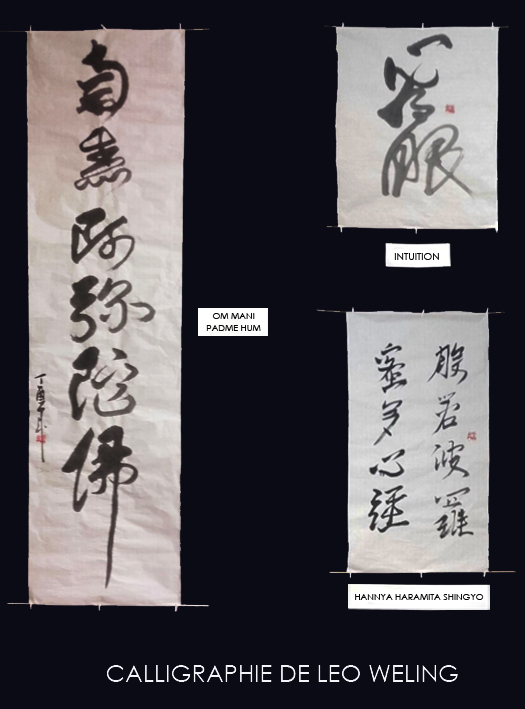 南無阿弥陀佛
丁酉
OM MANI
PADME HUM
眼
INTUITION
般若波羅
蜜多心經
HANNYA HARAMITA SHINGYO
CALLIGRAPHIE DE LEO WELING